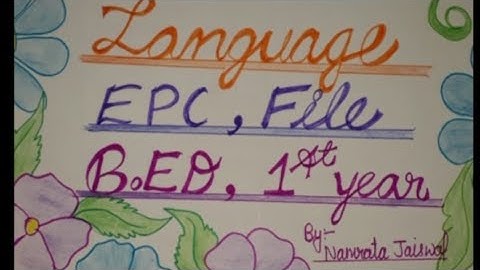 Language
EPC, File
B.ED, 1st year
By:-
Namrata Jaiswal